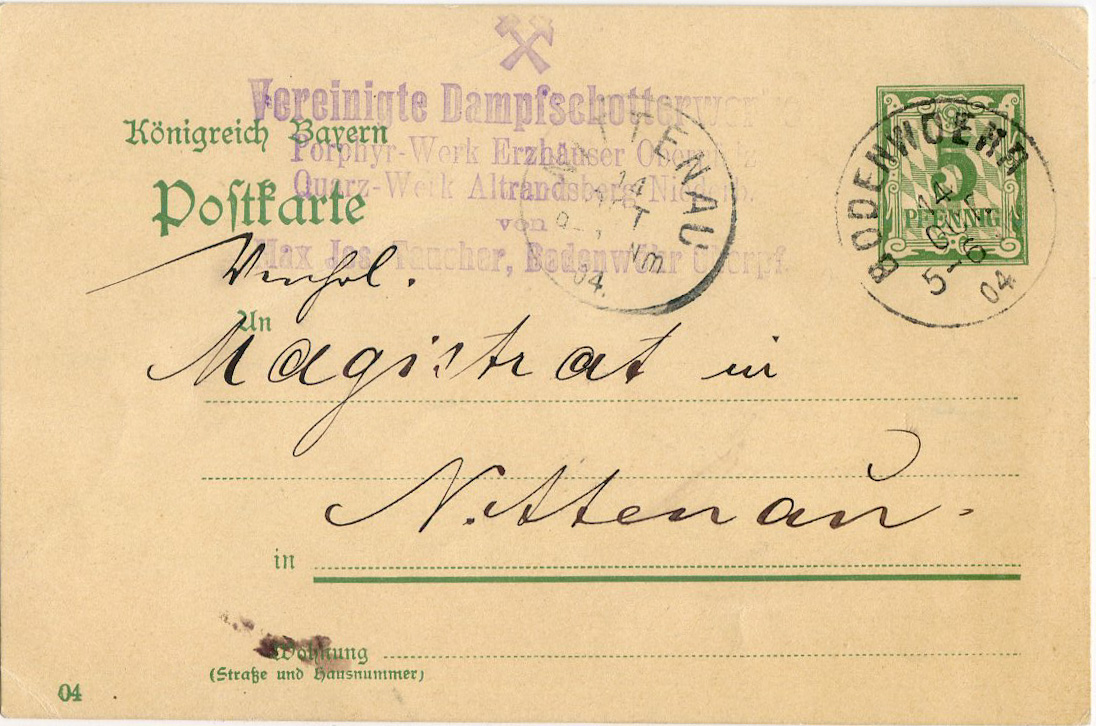 Vereinigte Dampfschotterwerke
Königreich Bayern
Porphyr-Werk Erzhäuser Oberpfalz
Quarz-Werk Altrandsberg Niederb.
Postkarte
von
Max Jos. Taucher, Bodenwöhr Oberpf.
NITTENAU
14
OKT
Nm
04.
5
PFENNIG
BODENWOEHR
14
OCT
5-6
04
An
Magistrat in
Nittenau.
in
Wohnung
(Straße und Hausnummer)
04